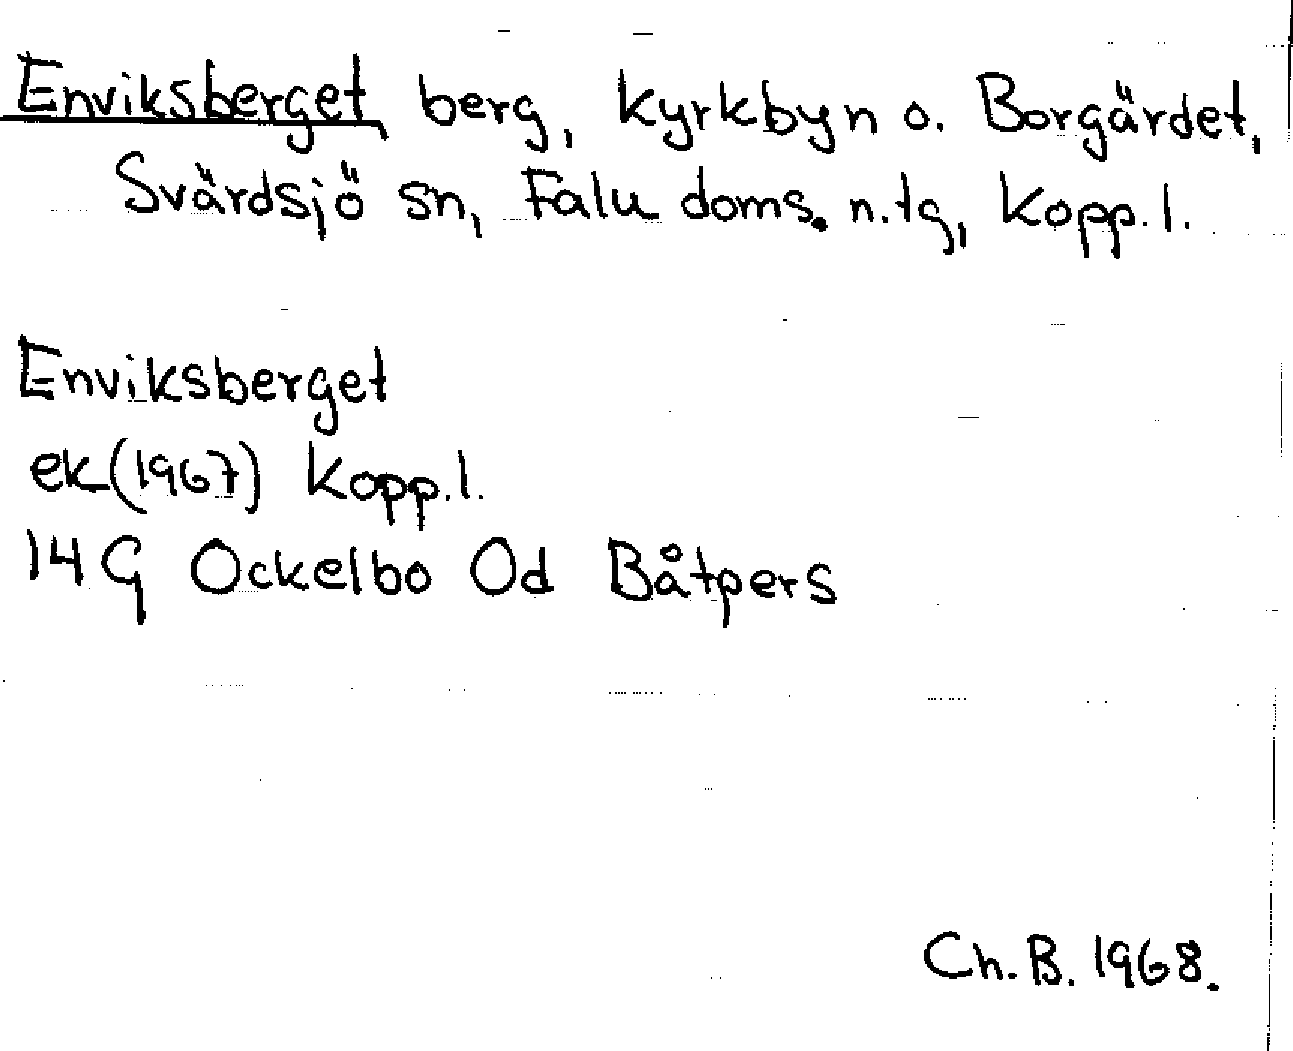 Enviksberget, berg, Kyrkbyn o. Borgärdet,
Svärdsjö sn, Falu doms. n.tg, Kopp.l.
Enviksberget
ek(1967) Kopp.l.
14G Ockelbo Od Båtpers
Ch.B. 1968.